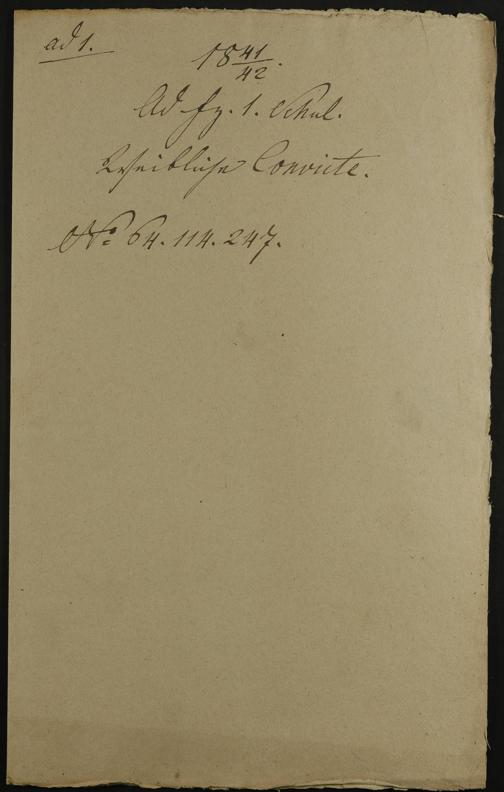 ad 1.
18 41/42.
Ad fz. 1. Schul.
Weibliche Convicte.
No. 64. 114. 247.